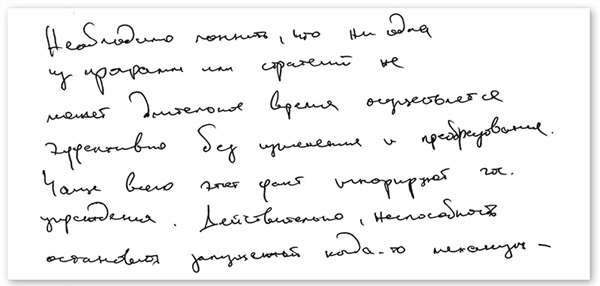 Необходимо помнить, что ни одна
из программ или стратегий не
может длительное время осуществлятся
эффективно без изменения и преобразования.
Чаще всего этот факт игнорируют гос.
учреждения. Действительно, неспособность
остановить запущенный когда-то механизм-